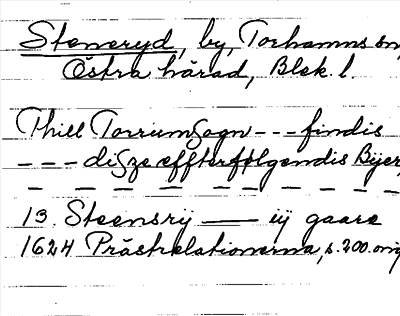 Steneryd, by, Torhamns sn,
Östra härad, Blek. l.
Thill Torrumsogn --- findis
--- disze effterfølgendis Byer,
— — — — — — — — — —
13. Steensrij —— iij gaare
1624 Prästrelationerna, s. 200. orig